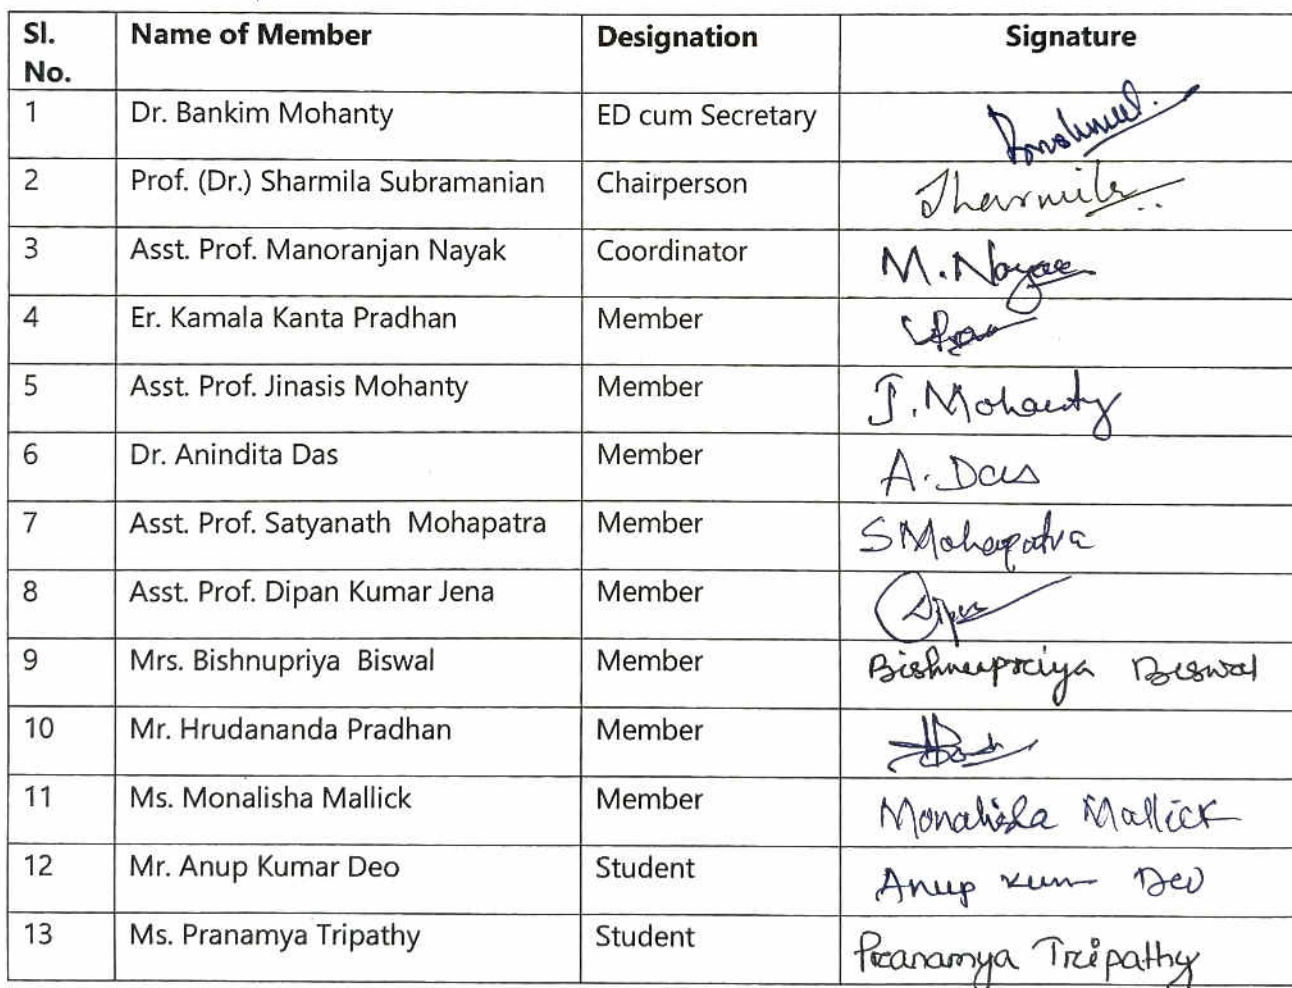 Sl. No. Name of Member Designation Signature
1 Dr. Bankim Mohanty ED cum Secretary
2 Prof. (Dr.) Sharmila Subramanian Chairperson Sharmila
3 Asst. Prof. Manoranjan Nayak Coordinator M. Nayak
4 Er. Kamala Kanta Pradhan Member
5 Asst. Prof. Jinasis Mohanty Member J. Mohanty
6 Dr. Anindita Das Member A. Das
7 Asst. Prof. Satyanath Mohapatra Member S Mohapatra
8 Asst. Prof. Dipan Kumar Jena Member Dipan
9 Mrs. Bishnupriya Biswal Member Bishnupriya Biswal
10 Mr. Hrudananda Pradhan Member
11 Ms. Monalisha Mallick Member Monalisha Mallick
12 Mr. Anup Kumar Deo Student Anup Kumar Deo
13 Ms. Pranamya Tripathy Student Pranamya Tripathy